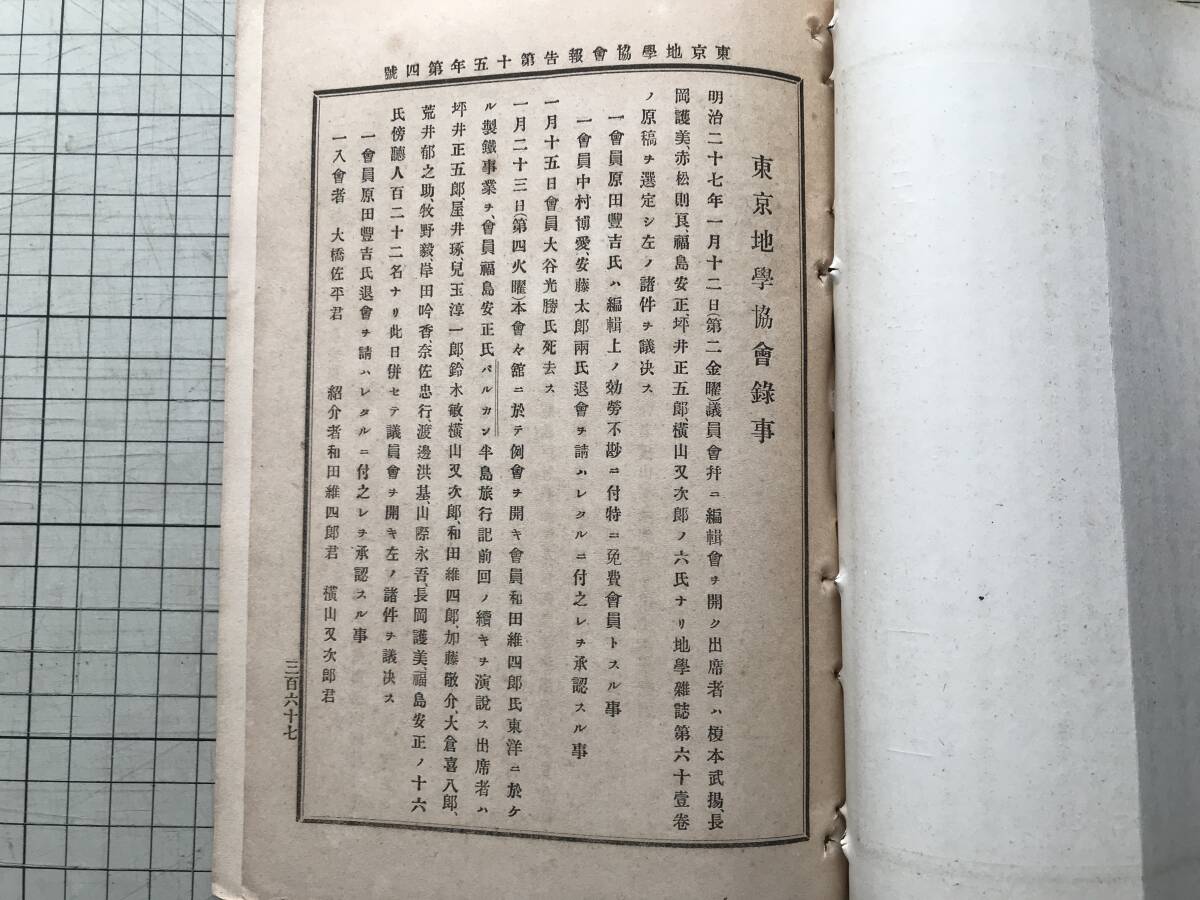 東京地學協會報告第十五年第四號
東京地學協會錄事
明治二十七年一月十二日(第二金曜)議員會幷ニ編輯會ヲ開ク出席者ハ榎本武揚、長
岡護美、赤松則良、福島安正、坪井正五郎、橫山又次郎ノ六氏ナリ地學雜誌第六十壹卷
ノ原稿ヲ選定シ左ノ諸件ヲ議决ス
一會員原田豐吉氏ハ編輯上ノ効勞不尠ニ付特ニ免費會員トスル事
一會員中村博愛、安藤太郎兩氏退會ヲ請ハレタルニ付之レヲ承認スル事
一月十五日會員大谷光勝氏死去ス
一月二十三日(第四火曜)本會々舘ニ於テ例會ヲ開キ會員和田維四郎氏東洋ニ於ケ
ル製鐵事業ヲ、會員福島安正氏バルカン半島旅行記前回ノ續キヲ演說ス出席者ハ
坪井正五郎、屋井琢、兒玉淳一郎、鈴木敏、橫山又次郎、和田維四郎、加藤敬介、大倉喜八郎、
荒井郁之助、牧野毅、岸田吟香、奈佐忠行、渡邊洪基、山際永吾、長岡護美、福島安正ノ十六
氏傍聽人百二十二名ナリ此日併セテ議員會ヲ開キ左ノ諸件ヲ議决ス
一會員原田豐吉氏退會ヲ請ハレタルニ付之レヲ承認スル事
一入會者 大橋佐平君 紹介者和田維四郎君 橫山又次郎君
三百六十七